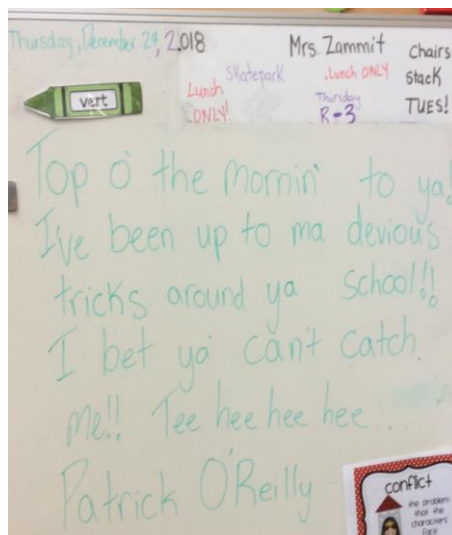 Thursday, December 24, 2018
Mrs. Zammit
Chairs
stack
TUES!
Skatepark
Lunch
ONLY!
.Lunch ONLY
Thursday
R-3
vert
Top o' the mornin' to ya!
I've been up to ma devious
tricks around ya school!!
I bet ya can't catch
me!! Tee hee hee hee...
Patrick O'Reilly
conflict
the problem
that the
characters
face